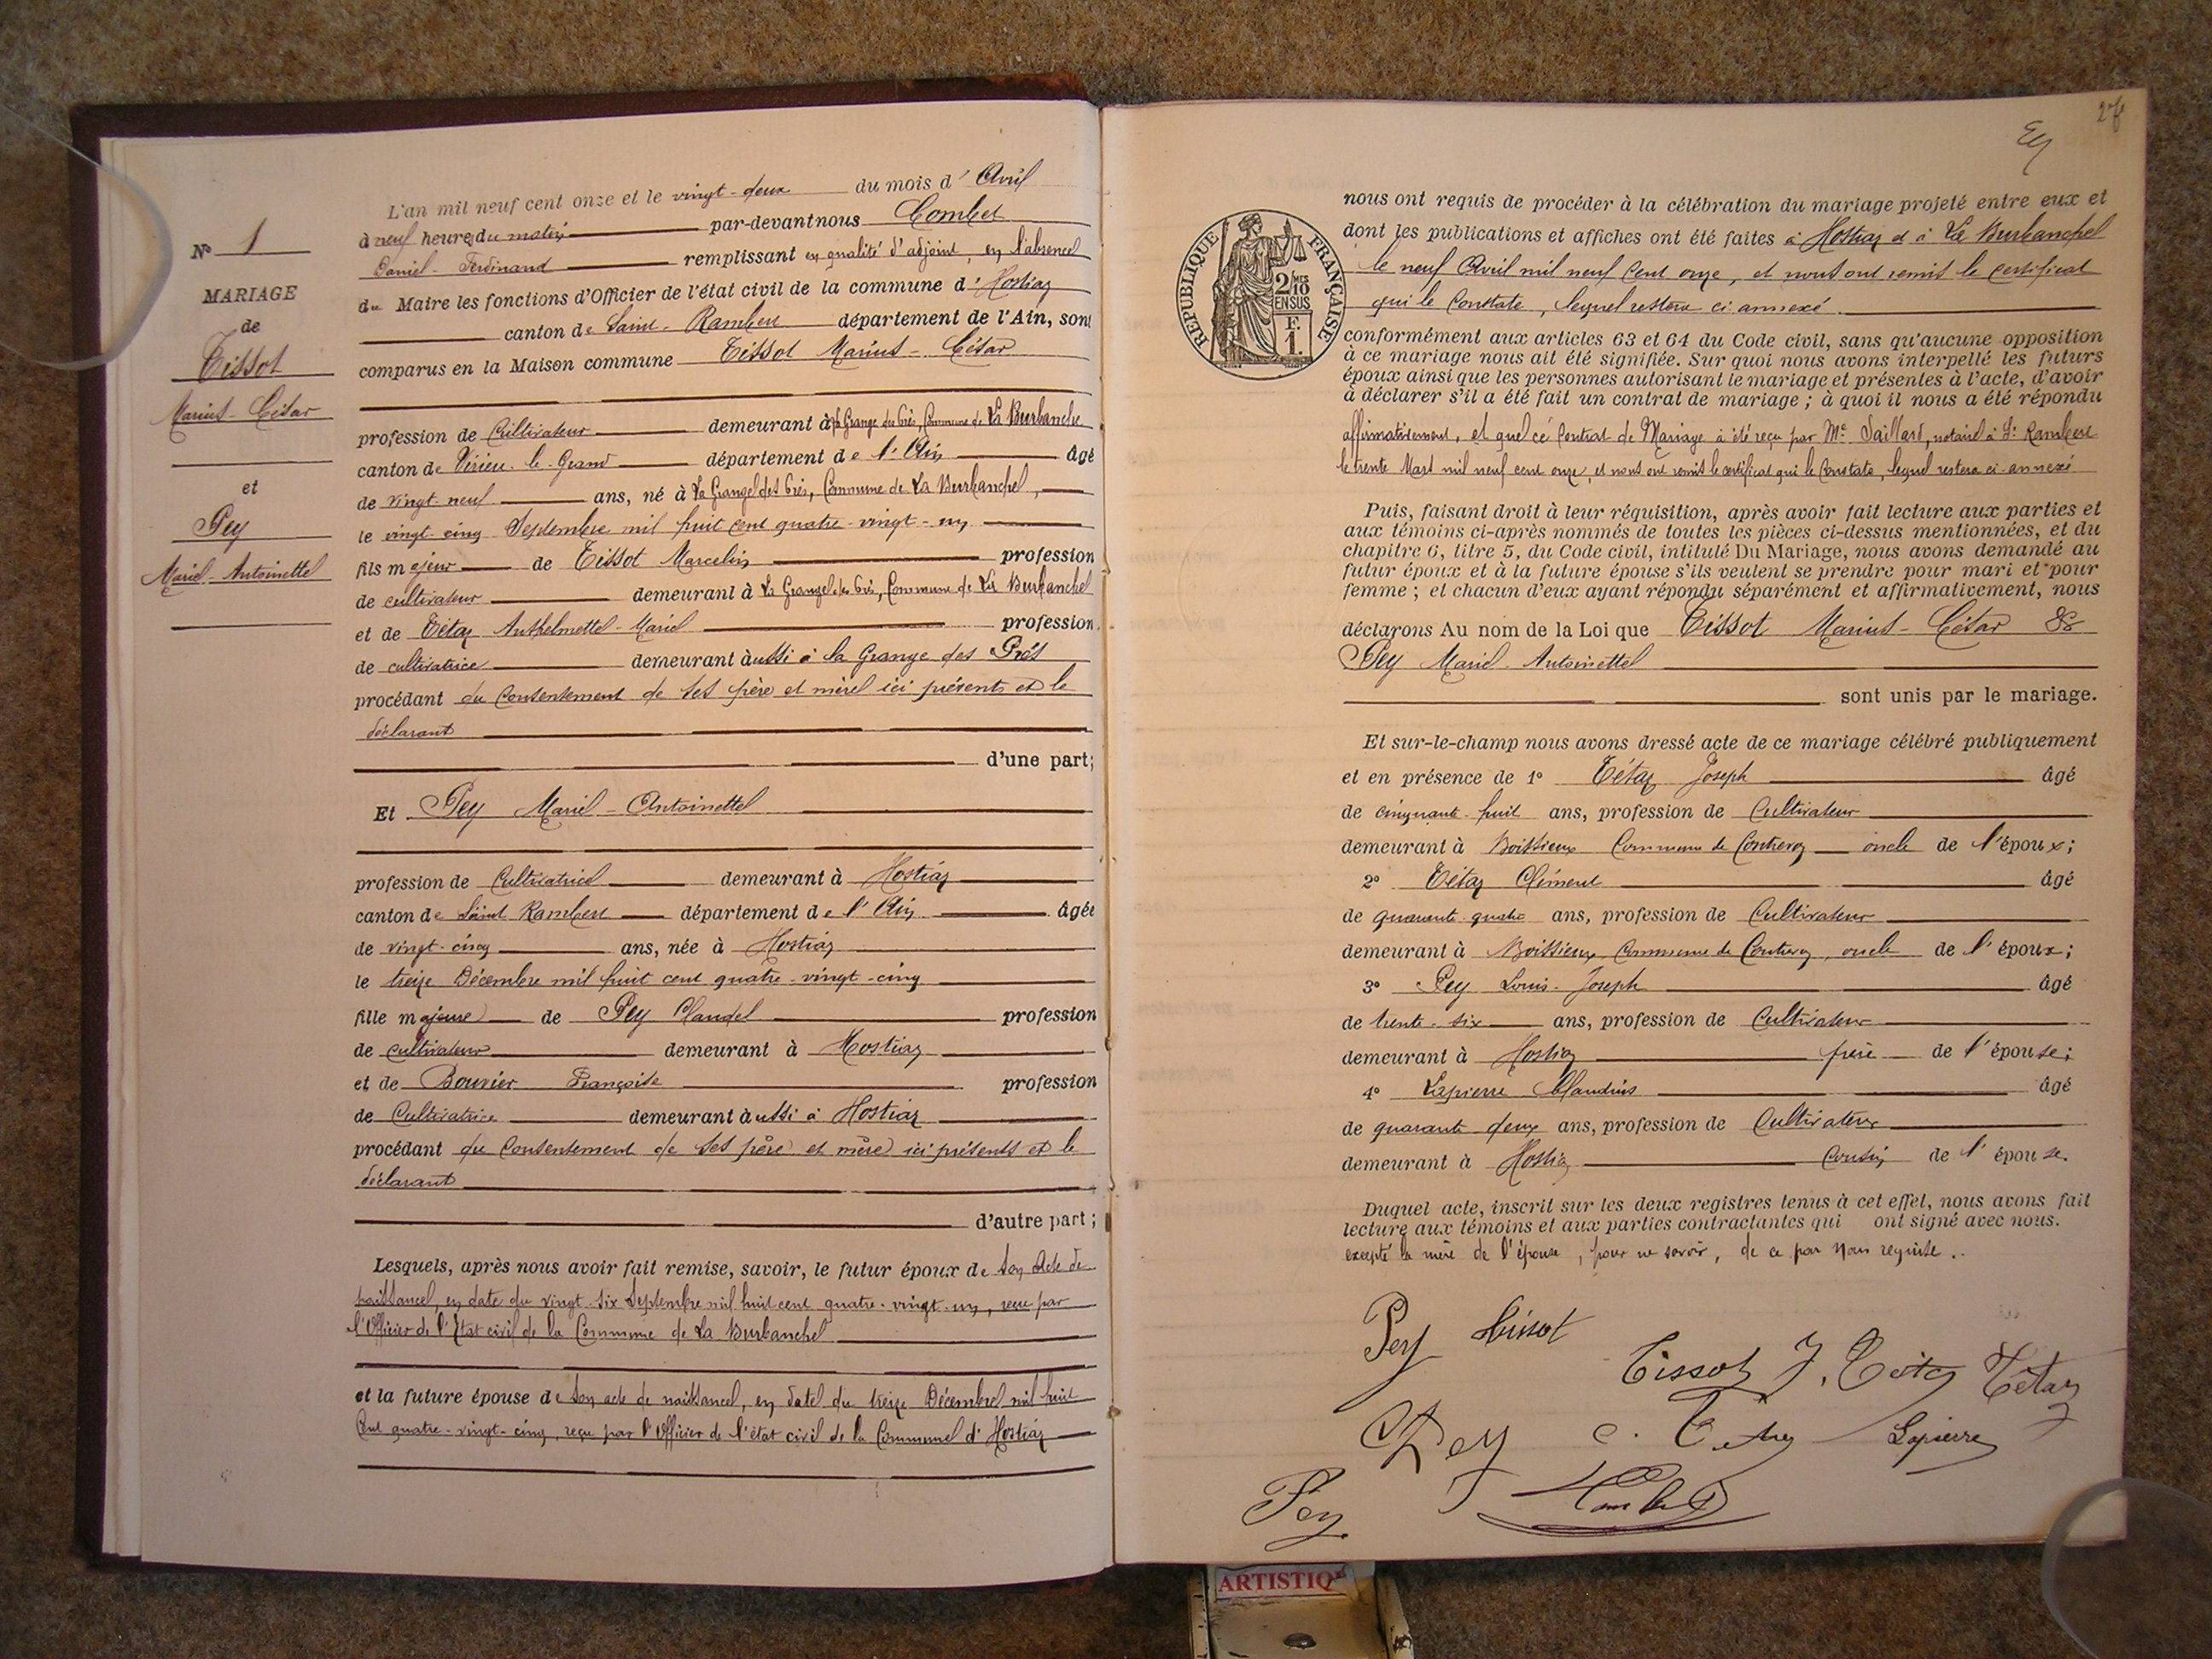 L'an mil neuf cent onze et le vingt-deux du mois d'Avril
à neuf heures du matin par-devant nous Combet
Daniel-Ferdinand remplissant en qualité d'adjoint, en l'absence
du Maire les fonctions d'Officier de l'état civil de la commune d'Hostiaz
canton de Saint-Rambert département de l'Ain, sont
comparus en la Maison commune Tissot Marius-César
profession de Cultivateur demeurant à la Grange des Prés, Commune de La Burbanche
canton de Virieu-le-Grand département de l'Ain âgé
de vingt-neuf ans, né à La Grange des Prés, Commune de La Burbanche,
le vingt-cinq Septembre mil huit cent quatre-vingt-un
fils majeur de Tissot Marcelin profession
de cultivateur demeurant à La Grange des Prés, Commune de La Burbanche
et de Tétaz Anthelmette-Marie profession
de cultivatrice demeurant aussi à La Grange des Prés
procédant du Consentement de ses père et mère ici présents et le
déclarant
d'une part;
Et Pey Marie-Antoinette
profession de Cultivatrice demeurant à Hostiaz
canton de Saint Rambert département de l'Ain âgée
de vingt-cinq ans, née à Hostiaz
le treize Décembre mil huit cent quatre-vingt-cinq
fille majeure de Pey Claude profession
de cultivateur demeurant à Hostiaz
et de Bouvier Françoise profession
de Cultivatrice demeurant aussi à Hostiaz
procédant du Consentement de ses père et mère ici présents et le
déclarant
d'autre part;
Lesquels, après nous avoir fait remise, savoir, le futur époux de son Acte de
naissance, en date du vingt-six Septembre mil huit cent quatre-vingt-un, reçu par
l'Officier de l'Etat civil de la Commune de La Burbanche
et la future épouse de son acte de naissance, en date du treize Décembre mil huit
Cent quatre-vingt-cinq, reçu par l'Officier de l'état civil de la Commune d'Hostiaz
N° 1
MARIAGE
de
Tissot
Marius-César
et
Pey
Marie-Antoinette
27
REPUBLIQUE FRANÇAISE
2/10 EN SUS
F.
1.
nous ont requis de procéder à la célébration du mariage projeté entre eux et
dont les publications et affiches ont été faites à Hostiaz et à La Burbanche
le neuf Avril mil neuf Cent onze, et nous ont remis le certificat
qui le Constate, lequel restera ci-annexé.
conformément aux articles 63 et 64 du Code civil, sans qu'aucune opposition
à ce mariage nous ait été signifiée. Sur quoi nous avons interpellé les futurs
époux ainsi que les personnes autorisant le mariage et présentes à l'acte, d'avoir
à déclarer s'il a été fait un contrat de mariage; à quoi il nous a été répondu
affirmativement, et que ce Contrat de Mariage a été reçu par Me Saillard, notaire à St Rambert
le trente Mars mil neuf cent onze, et nous ont remis le certificat qui le Constate, lequel restera ci-annexé
Puis, faisant droit à leur réquisition, après avoir fait lecture aux parties et
aux témoins ci-après nommés de toutes les pièces ci-dessus mentionnées, et du
chapitre 6, titre 5, du Code civil, intitulé Du Mariage, nous avons demandé au
futur époux et à la future épouse s'ils veulent se prendre pour mari et pour
femme; et chacun d'eux ayant répondu séparément et affirmativement, nous
déclarons Au nom de la Loi que Tissot Marius-César &
Pey Marie-Antoinette
sont unis par le mariage.
Et sur-le-champ nous avons dressé acte de ce mariage célébré publiquement
et en présence de 1° Tétaz Joseph âgé
de cinquante-huit ans, profession de Cultivateur
demeurant à Boissieux Commune de Contrevoz oncle de l'époux;
2° Tétaz Clément âgé
de quarante-quatre ans, profession de Cultivateur
demeurant à Boissieux, Commune de Contrevoz, oncle de l'époux;
3° Pey Louis-Joseph âgé
de trente-six ans, profession de Cultivateur
demeurant à Hostiaz frère de l'épouse;
4° Lapierre Claudius âgé
de quarante deux ans, profession de Cultivateur
demeurant à Hostiaz Cousin de l'épouse.
Duquel acte, inscrit sur les deux registres tenus à cet effet, nous avons fait
lecture aux témoins et aux parties contractantes qui ont signé avec nous.
excepté la mère de l'épouse, pour ne savoir, de ce par Nous requise..
Pey Tissot
Tissot J. Tétaz Tétaz
Pey C. Tétaz Lapierre
Pey Combet
ARTISTIQ